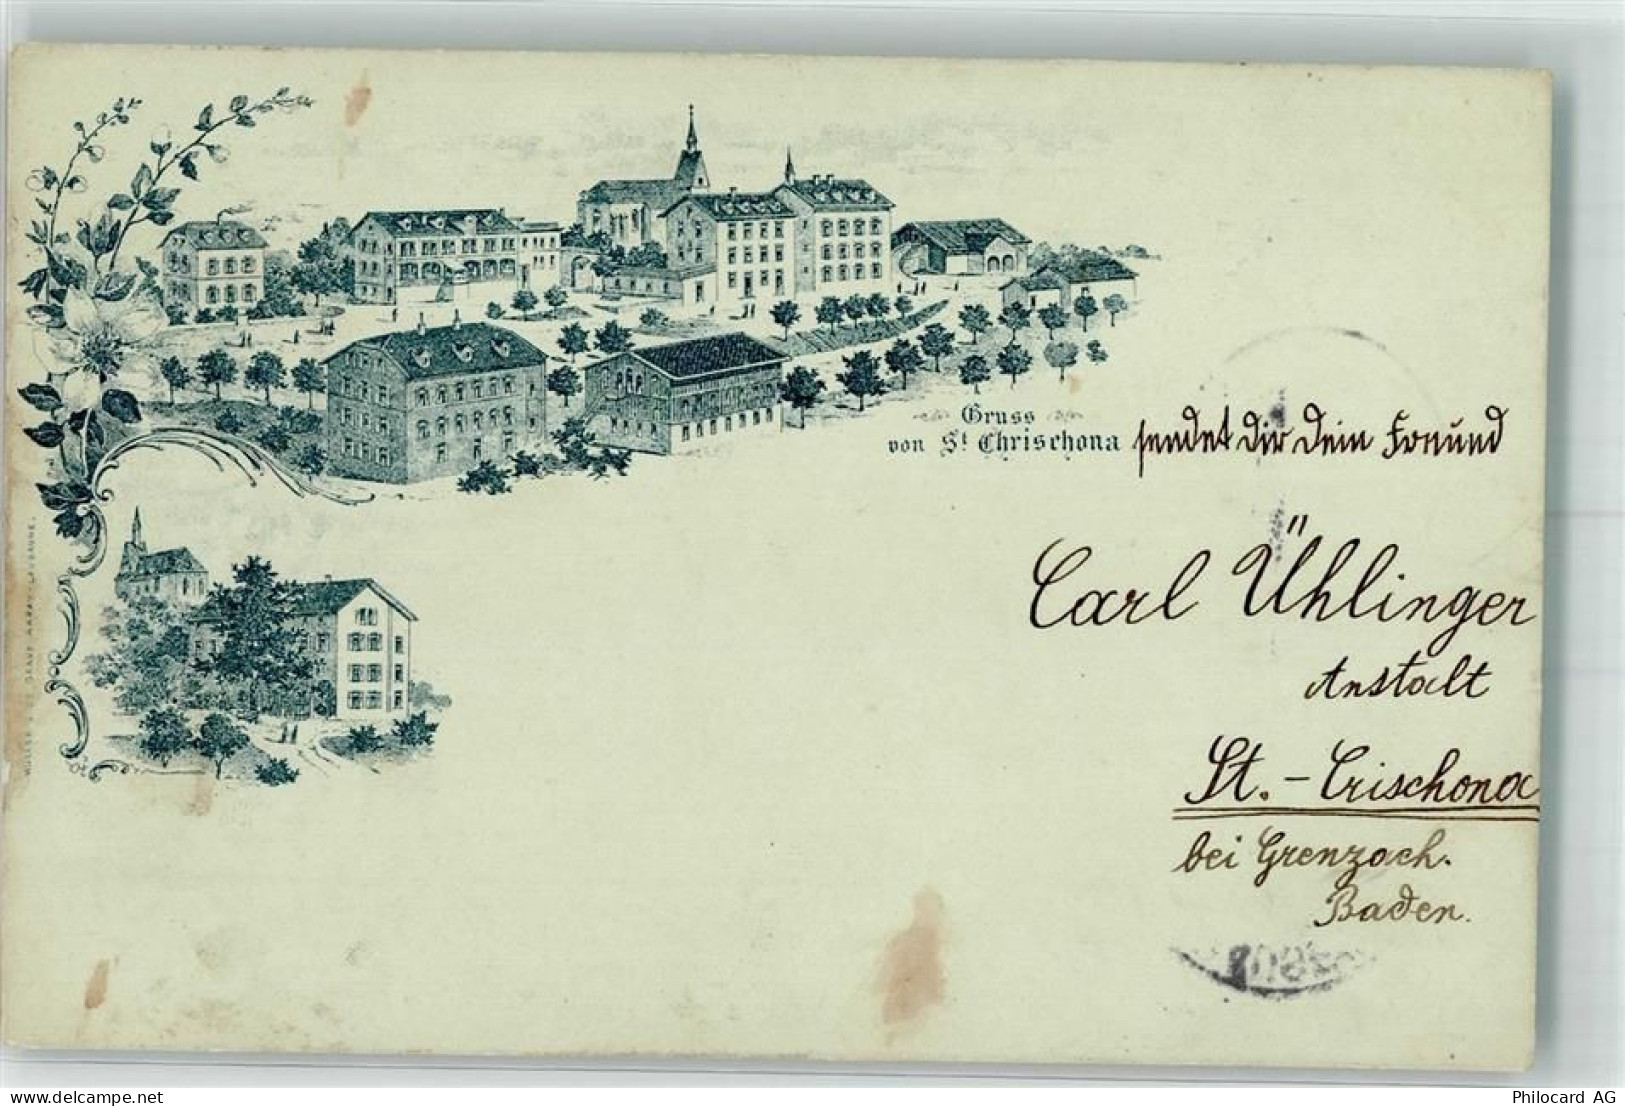 Gruss
von St. Chrischona sendet dir dein Freund
Carl Ühlinger
Anstalt
St.-Crischona
bei Grenzach.
Baden.
delcampe.net
Philocard AG